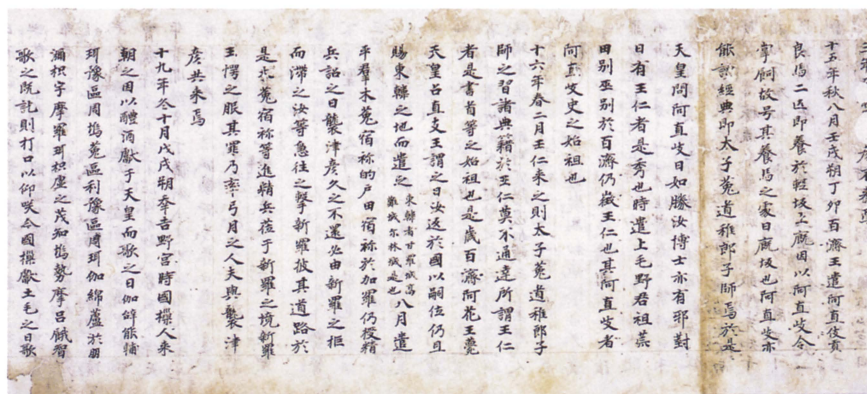 十五年秋八月壬戌朔丁卯百濟王遣阿直伎貢
良馬二匹即養於軽坂上廐因以阿直岐令
掌飼故号其養馬之處曰廐坂也阿直岐亦
能讀經典即太子菟道稚郎子師焉於是
天皇問阿直岐曰如勝汝博士亦有耶對
曰有王仁者是秀也時遣上毛野君祖荒
田別巫別於百濟仍徴王仁也其阿直岐者
阿直岐史之始祖也
十六年春二月王仁来之則太子菟道稚郎子
師之習諸典籍於王仁莫不通達所謂王仁
者是書首等之始祖也是歳百濟阿花王薨
天皇召直支王謂之曰汝返於國以嗣位仍且
賜東韓之地而遣之東韓者甘羅城高難城尓林城是也八月遣
平羣木菟宿祢的戸田宿祢於加羅仍授精
兵詔之曰襲津彦久之不還必由新羅之拒
而滯之汝等急往之擊新羅披其道路於
是木菟宿祢等進精兵莅于新羅之境新羅
王愕之服其罪乃率弓月之人夫與襲津
彦共来焉
十九年冬十月戊戌朔幸吉野宮時國樔人来
朝之因以醴酒獻于天皇而歌之曰伽辞能輔
珥豫區周塢菟區利豫區周珥伽綿蘆於朋
瀰枳宇摩羅珥枳虚之茂知塢勢摩呂餓智
歌之既訖則打口以仰咲今國樔獻土毛之日歌